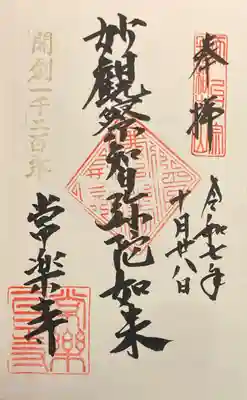 奉拝
令和七年
十月廿八日
妙觀察智弥陀如来
常楽寺
開創一千二百年
常樂